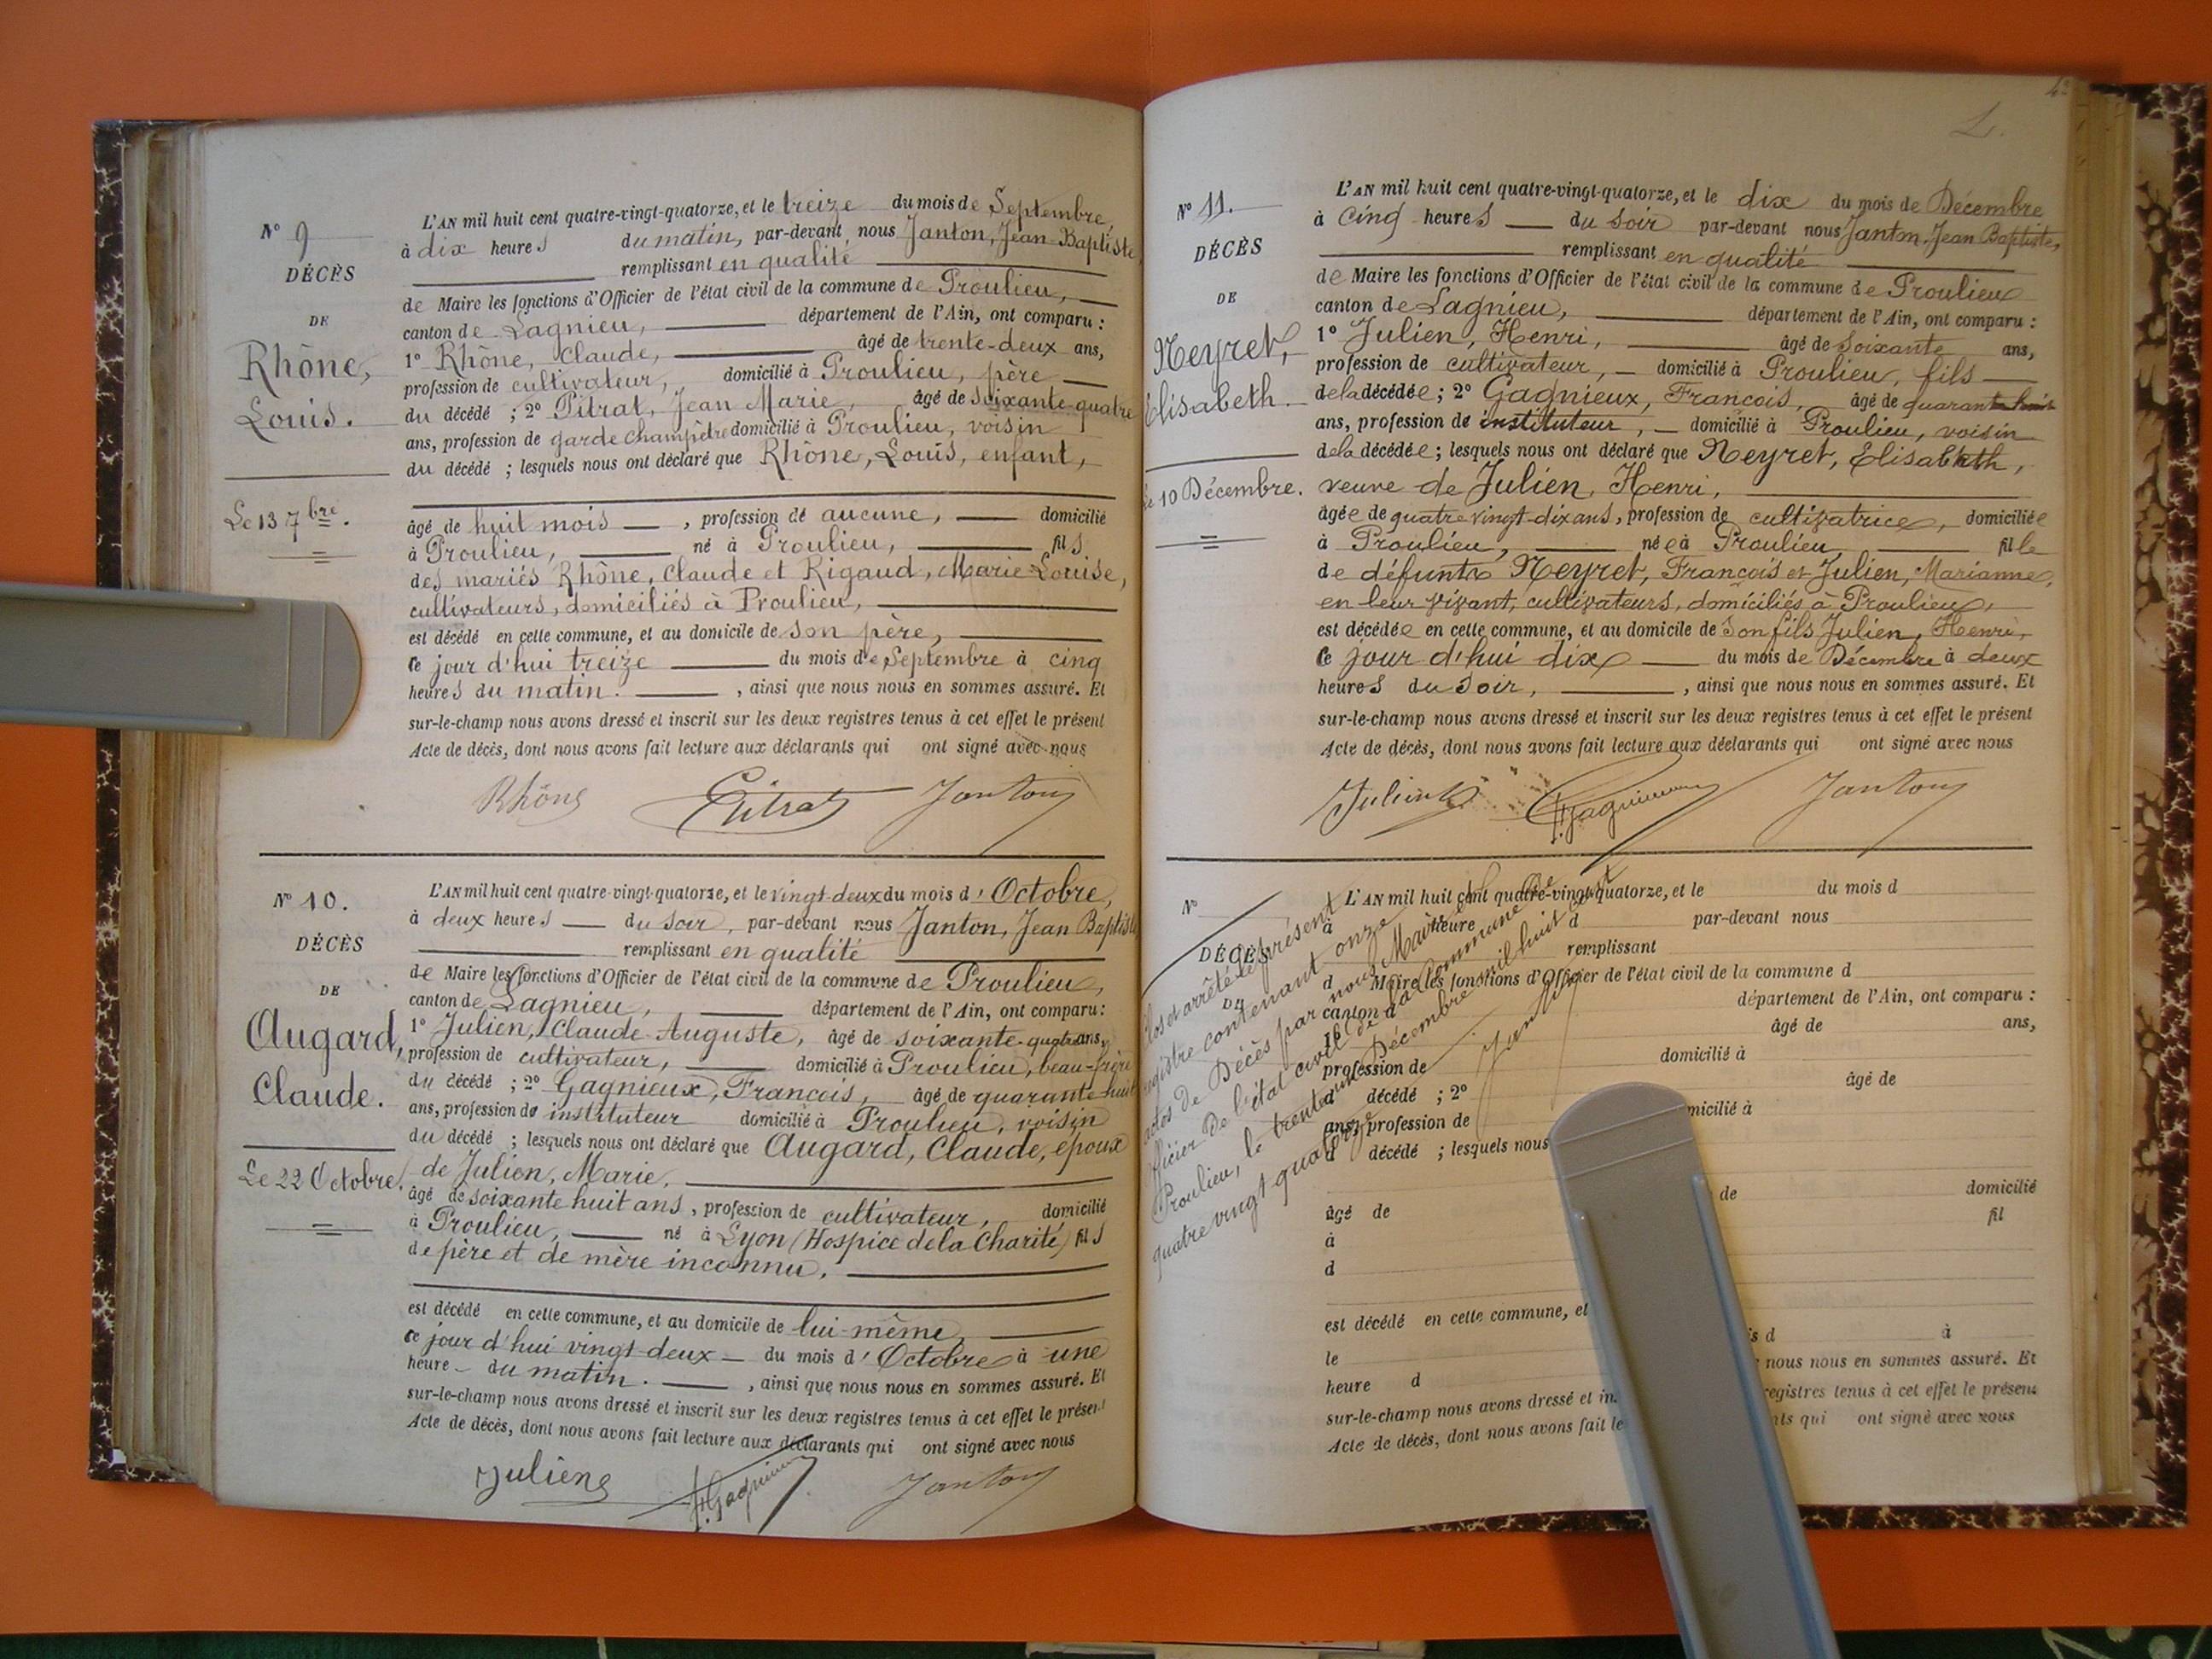 N° 9
DÉCÈS
DE
Rhône,
Louis.
Le 13 7bre.
L'AN mil huit cent quatre-vingt-quatorze, et le treize du mois de Septembre,
à dix heures du matin, par-devant nous Janton, Jean-Baptiste,
remplissant en qualité
de Maire les fonctions d'Officier de l'état civil de la commune de Proulieu,
canton de Lagnieu, département de l'Ain, ont comparu :
1° Rhône, Claude, âgé de trente-deux ans,
profession de cultivateur, domicilié à Proulieu, père
du décédé ; 2° Pitrat, Jean Marie, âgé de soixante-quatre
ans, profession de garde champêtre domicilié à Proulieu, voisin
du décédé ; lesquels nous ont déclaré que Rhône, Louis, enfant,
âgé de huit mois, profession de aucune, domicilié
à Proulieu, né à Proulieu, fils
des mariés Rhône, Claude et Rigaud, Marie-Louise,
cultivateurs, domiciliés à Proulieu,
est décédé en cette commune, et au domicile de son père,
ce jour d'hui treize du mois de Septembre à cinq
heures du matin. , ainsi que nous nous en sommes assuré. Et
sur-le-champ nous avons dressé et inscrit sur les deux registres tenus à cet effet le présent
Acte de décès, dont nous avons fait lecture aux déclarants qui ont signé avec nous
Rhône Pitrat Janton
N° 10.
DÉCÈS
DE
Augard,
Claude.
Le 22 Octobre.
L'AN mil huit cent quatre-vingt-quatorze, et le vingt-deux du mois d'Octobre,
à deux heures du soir, par-devant nous Janton, Jean Baptiste
remplissant en qualité
de Maire les fonctions d'Officier de l'état civil de la commune de Proulieu,
canton de Lagnieu, département de l'Ain, ont comparu :
1° Julien, Claude-Auguste, âgé de soixante-quatre ans,
profession de cultivateur, domicilié à Proulieu, beau-frère
du décédé ; 2° Gagnieux, François, âgé de quarante-huit
ans, profession de instituteur domicilié à Proulieu, voisin
du décédé ; lesquels nous ont déclaré que Augard, Claude, époux
de Julien, Marie,
âgé de soixante huit ans, profession de cultivateur, domicilié
à Proulieu, né à Lyon (Hospice de la Charité) fils
de père et de mère inconnu.
est décédé en cette commune, et au domicile de lui-même,
ce jour d'hui vingt-deux du mois d'Octobre à une
heure du matin. , ainsi que nous nous en sommes assuré. Et
sur-le-champ nous avons dressé et inscrit sur les deux registres tenus à cet effet le présent
Acte de décès, dont nous avons fait lecture aux déclarants qui ont signé avec nous
Julien F. Gagnieux Janton
N° 11.
DÉCÈS
DE
Neyret,
Elisabeth.
Le 10 Décembre.
L'AN mil huit cent quatre-vingt-quatorze, et le dix du mois de Décembre
à cinq heures du soir par-devant nous Janton, Jean Baptiste,
remplissant en qualité
de Maire les fonctions d'Officier de l'état civil de la commune de Proulieu
canton de Lagnieu, département de l'Ain, ont comparu :
1° Julien, Henri, âgé de soixante ans,
profession de cultivateur, domicilié à Proulieu, fils
de la décédée ; 2° Gagnieux, François, âgé de quarante-huit
ans, profession de instituteur, domicilié à Proulieu, voisin
de la décédée ; lesquels nous ont déclaré que Neyret, Elisabeth,
veuve de Julien, Henri,
âgée de quatre vingt-dix ans, profession de cultivatrice, domiciliée
à Proulieu, née à Proulieu, fille
de défunts Neyret, François et Julien, Marianne,
en leur vivant, cultivateurs, domiciliés à Proulieu,
est décédée en cette commune, et au domicile de son fils Julien, Henri,
ce jour d'hui dix du mois de Décembre à deux
heures du soir, , ainsi que nous nous en sommes assuré. Et
sur-le-champ nous avons dressé et inscrit sur les deux registres tenus à cet effet le présent
Acte de décès, dont nous avons fait lecture aux déclarants qui ont signé avec nous
Julien F. Gagnieux Janton
N°
DÉCÈS
DE
L'AN mil huit cent quatre-vingt-quatorze, et le du mois d
à heure d par-devant nous
remplissant
d Maire les fonctions d'Officier de l'état civil de la commune d
canton d département de l'Ain, ont comparu :
1° âgé de ans,
profession de domicilié à
d décédé ; 2° âgé de
ans, profession de micilié à
d décédé ; lesquels nous
âgé de de domicilié
à fil
d
est décédé en cette commune, et
le is d à
heure d nous nous en sommes assuré. Et
sur-le-champ nous avons dressé et in registres tenus à cet effet le présent
Acte de décès, dont nous avons fait le nts qui ont signé avec nous
Clos et arrêté le présent
registre contenant onze
actes de Décès par nous Maire
officier de l'état civil de la commune de
Proulieu, le trente un Décembre mil huit cent
quatre vingt quatorze
Janton